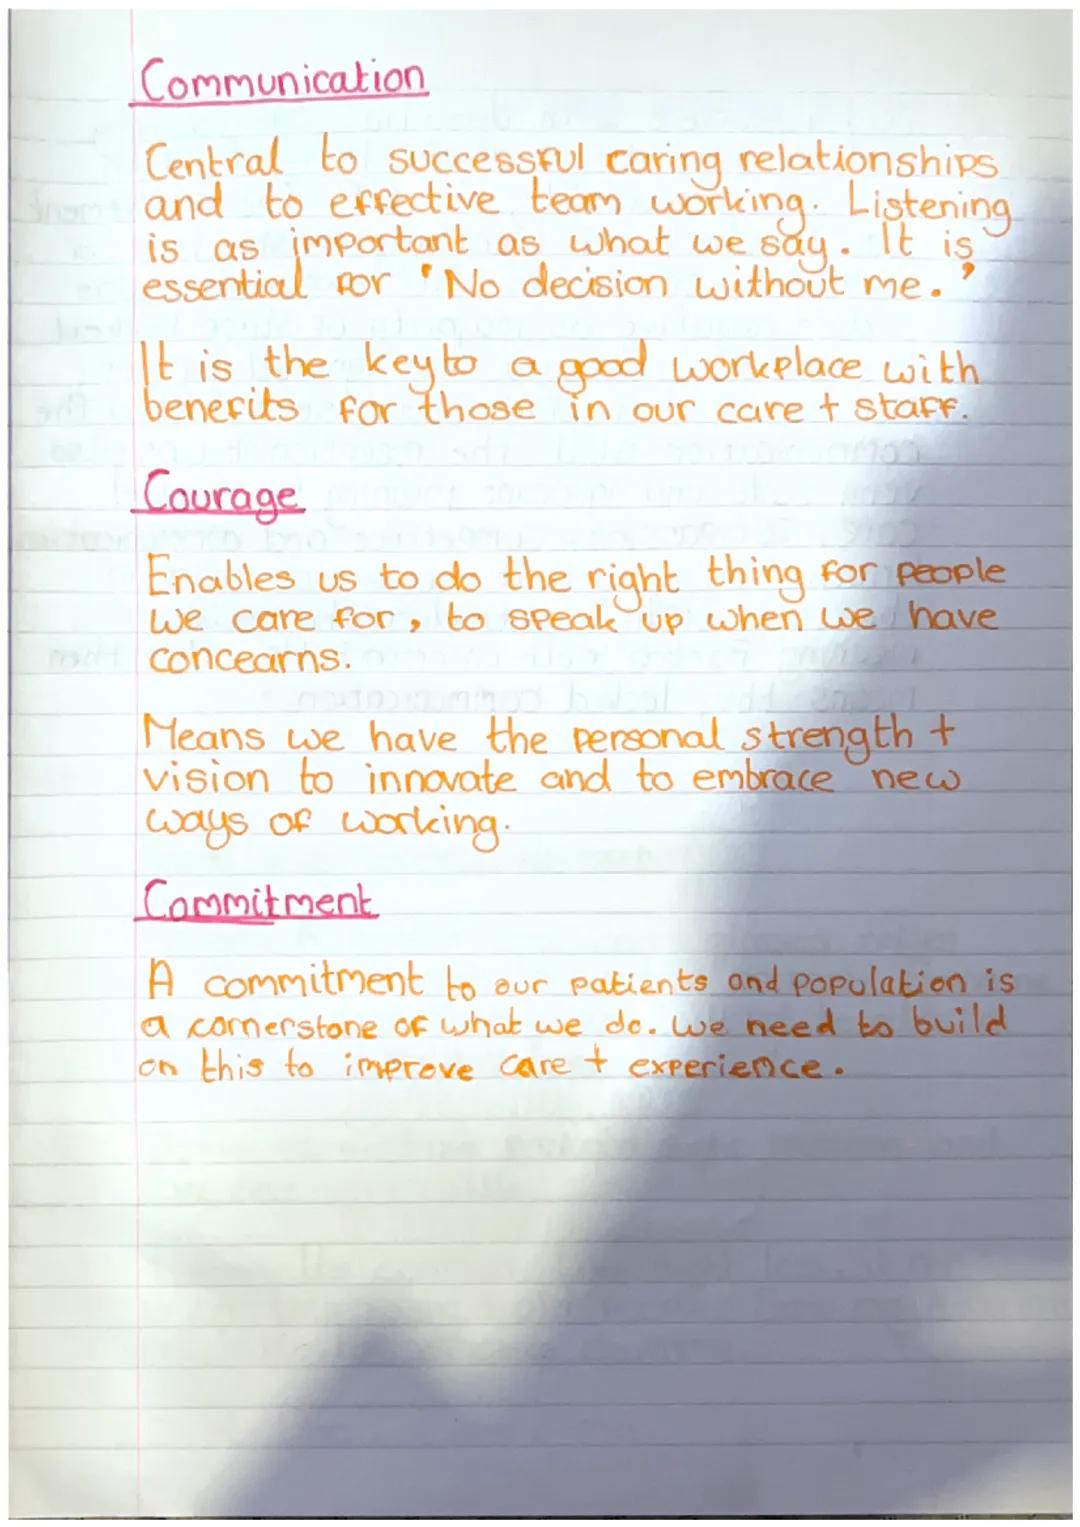 Communication
Central to successful caring relationships
and to effective team working. Listening
is as important as what we say. It is
essential for 'No decision without me.'
It is the key to a good workplace with
benefits for those in our care + staff.
Courage
Enables us to do the right thing for people
we care for, to speak up when we have
concearns.
Means we have the personal strength +
vision to innovate and to embrace new
ways of working.
Commitment
A commitment to our patients and population is
a cornerstone of what we do. We need to build
on this to improve care + experience.